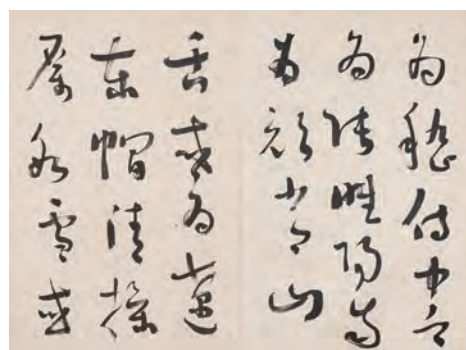 為嵇侍中血
為張睢陽齒
為顏常山
舌或為遼
東帽清操
厲冰雪或